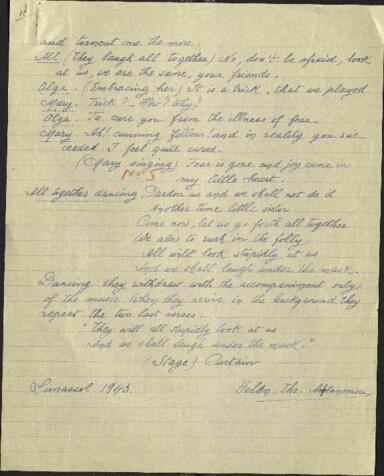 and torment me the more.
All (They laugh all together) No, don't be afraid, look
at us, we are the same, your friends.
Olga. (Embracing her) It is a trick, that we played
Mary. Trick? - How? Why?
Olga. To cure you from the illness of fear
Mary. Ah! cunning fellows! and in reality you suc-
ceeded I feel quite cured.
(Mary singing) Fear is gone and joy came in
No 5 my little heart.
All together dancing Pardon us and we shall not do it
Another time little sister
Come now, let us go forth all together
We also to rush in the folly
All will look stupidly at us
And we shall laugh under the mask.
Dancing they withdraw with the accompaniment only
of the music. When they arrive in the background they
repeat the two last verses.
"They will all stupidly look at us
And we shall laugh under the mask."
(Stage) Curtain
Limassol 1943.